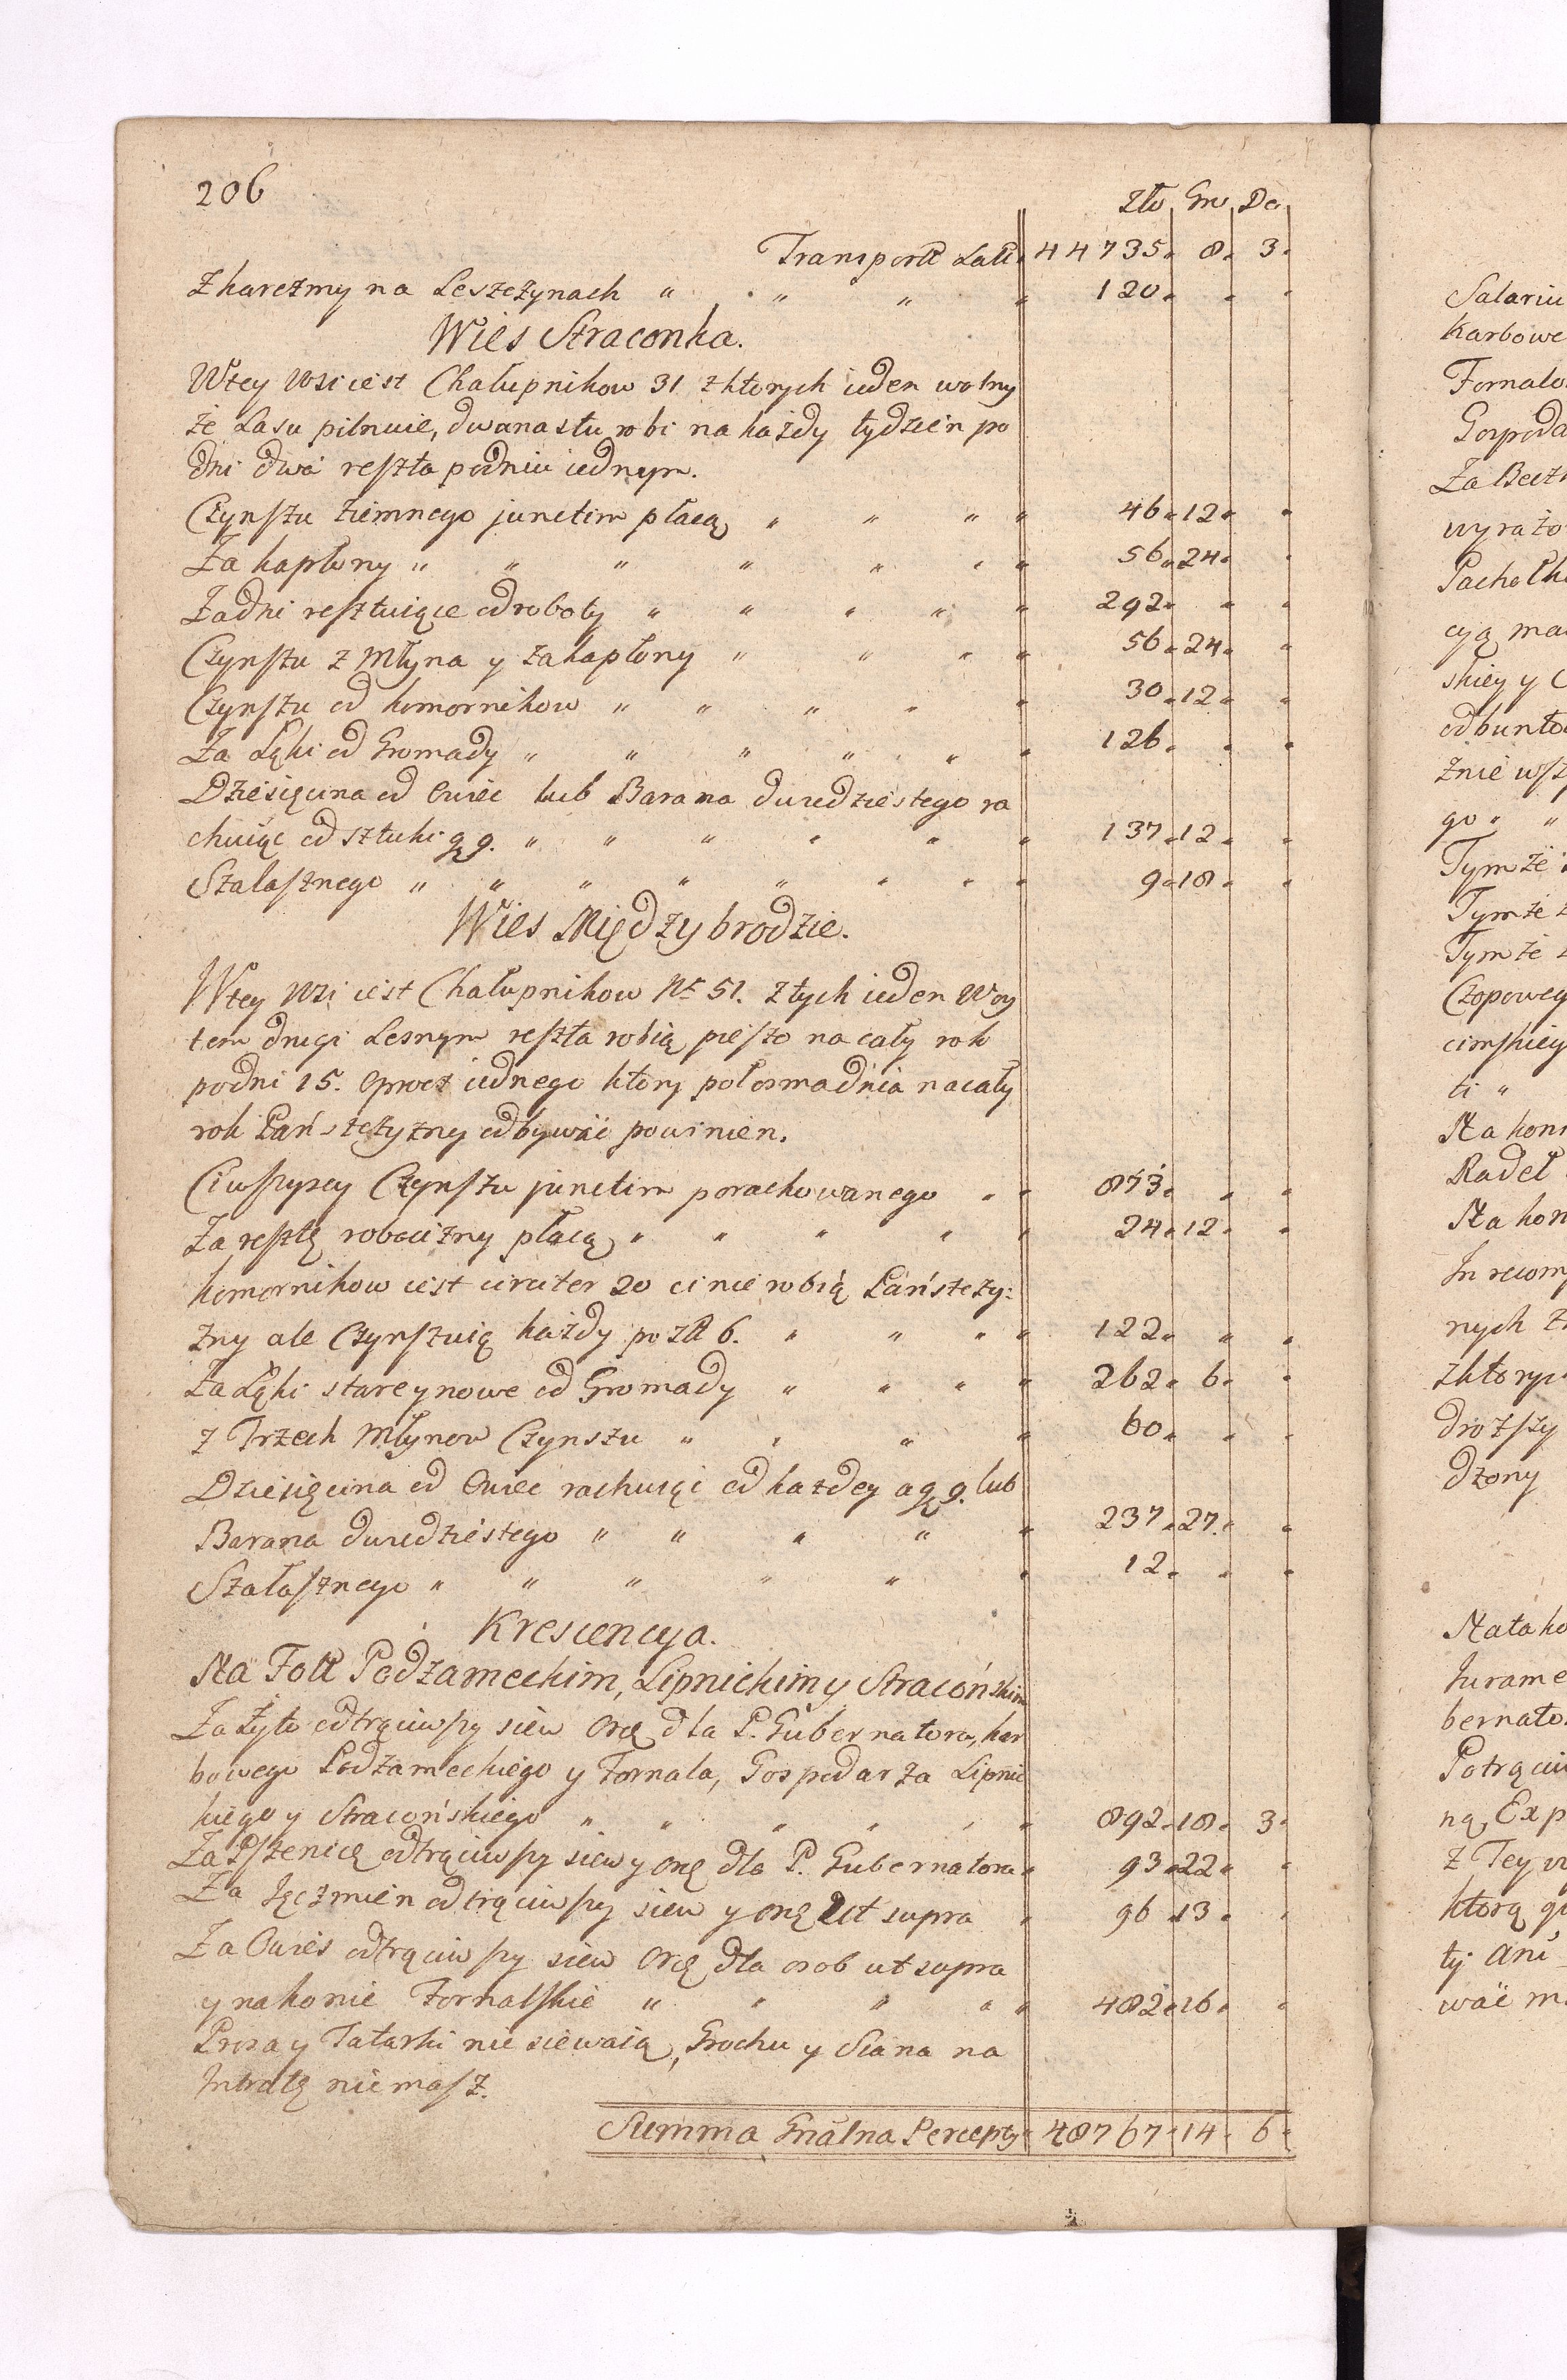 206
Zło Gro De
Transport Lat. 44735. 8. 3.
Zkarczmy na Leszczynach " " " " 120. " "
Wieś Straconka.
Wtey Wsi iest Chałupnikow 31 zktorych ieden wolny
że Lasu pilnuie, dwanastu robi na każdy tydzień po
dni dwa reszta podniu iednym.
Czynszu ziemnego junctim płacą " " " " 46. 12. "
Za kapłony " " " " " " " 56. 24. "
Zadni resztuiące odroboty " " " " " 292. " "
Czynszu z Młyna y zakapłony " " " " 56. 24. "
Czynszu od komornikow " " " " " 30. 12. "
Za Łąki od Gromady " " " " " " 126. " "
Dziesięcina od Owiec lub Barana dwudziestego ra
chuiąc od sztuki gr 9. " " " " " " 137. 12. "
Szałasznego " " " " " " " " 9. 18. "
Wieś Międzybrodzie.
Wtey Wsi iest Chałupnikow Nr 51. Ztych ieden Woy
tem drugi Lesnym reszta robią pieszo na cały rok
podni 15. oprocz iednego ktory połosmadnia nacały
rok Pańszczyzny odbywać powinien.
Ciwszyscy Czynszu junctim porachowanego " " 873. " "
Za resztę robocizny płacą " " " " " 24. 12. "
komornikow iest circiter 20 ci nie robią Pańszczy:
zny ale Czynszuią każdy po Zł 6. " " " " 122. " "
Za Łąki stare ynowe od Gromady " " " " 262. 6. "
z Trzech Młynow Czynszu " " " " 60. " "
Dziesięcina od Owiec rachuiąc od każdey a gr 9. lub
Barana dwudziestego " " " " " 237. 27. "
Szałasznego " " " " " " 12. " "
Krescencya.
Na Fol. Podzameckim, Lipnickim y Straconskim
Za Żyto odtrąciwszy siew Orą dla P. Gubernatora, kar
bowego Podzameckiego y Fornala, Gospodarza Lipnic
kiego y Straconskiego " " " " " " 892. 18. 3.
Za Pszenicę odtrąciwszy siew y orą dla P. Gubernatora " 93. 22. "
Za Jęczmień odtrąciwszy siew y orą Ut supra " 96. 13. "
Za Owies odtrąciwszy siew Orą dla osob ut supra
y na konie Fornalskie " " " " " 482. 16. "
Prosa y Tatarki nie siewaią, Grochu y Siana na
Intratę niemasz.
Summa Gnālna Percepty 48767. 14. 6.
Karbowe
wyrażo
cyą
go " "
Tym że
Tymże
Tymże
Czopoweg
ti "
Radeł
In recom
nych
zktory
dzony
bernato
ną Exp
z Tey
ktorą
ty ani